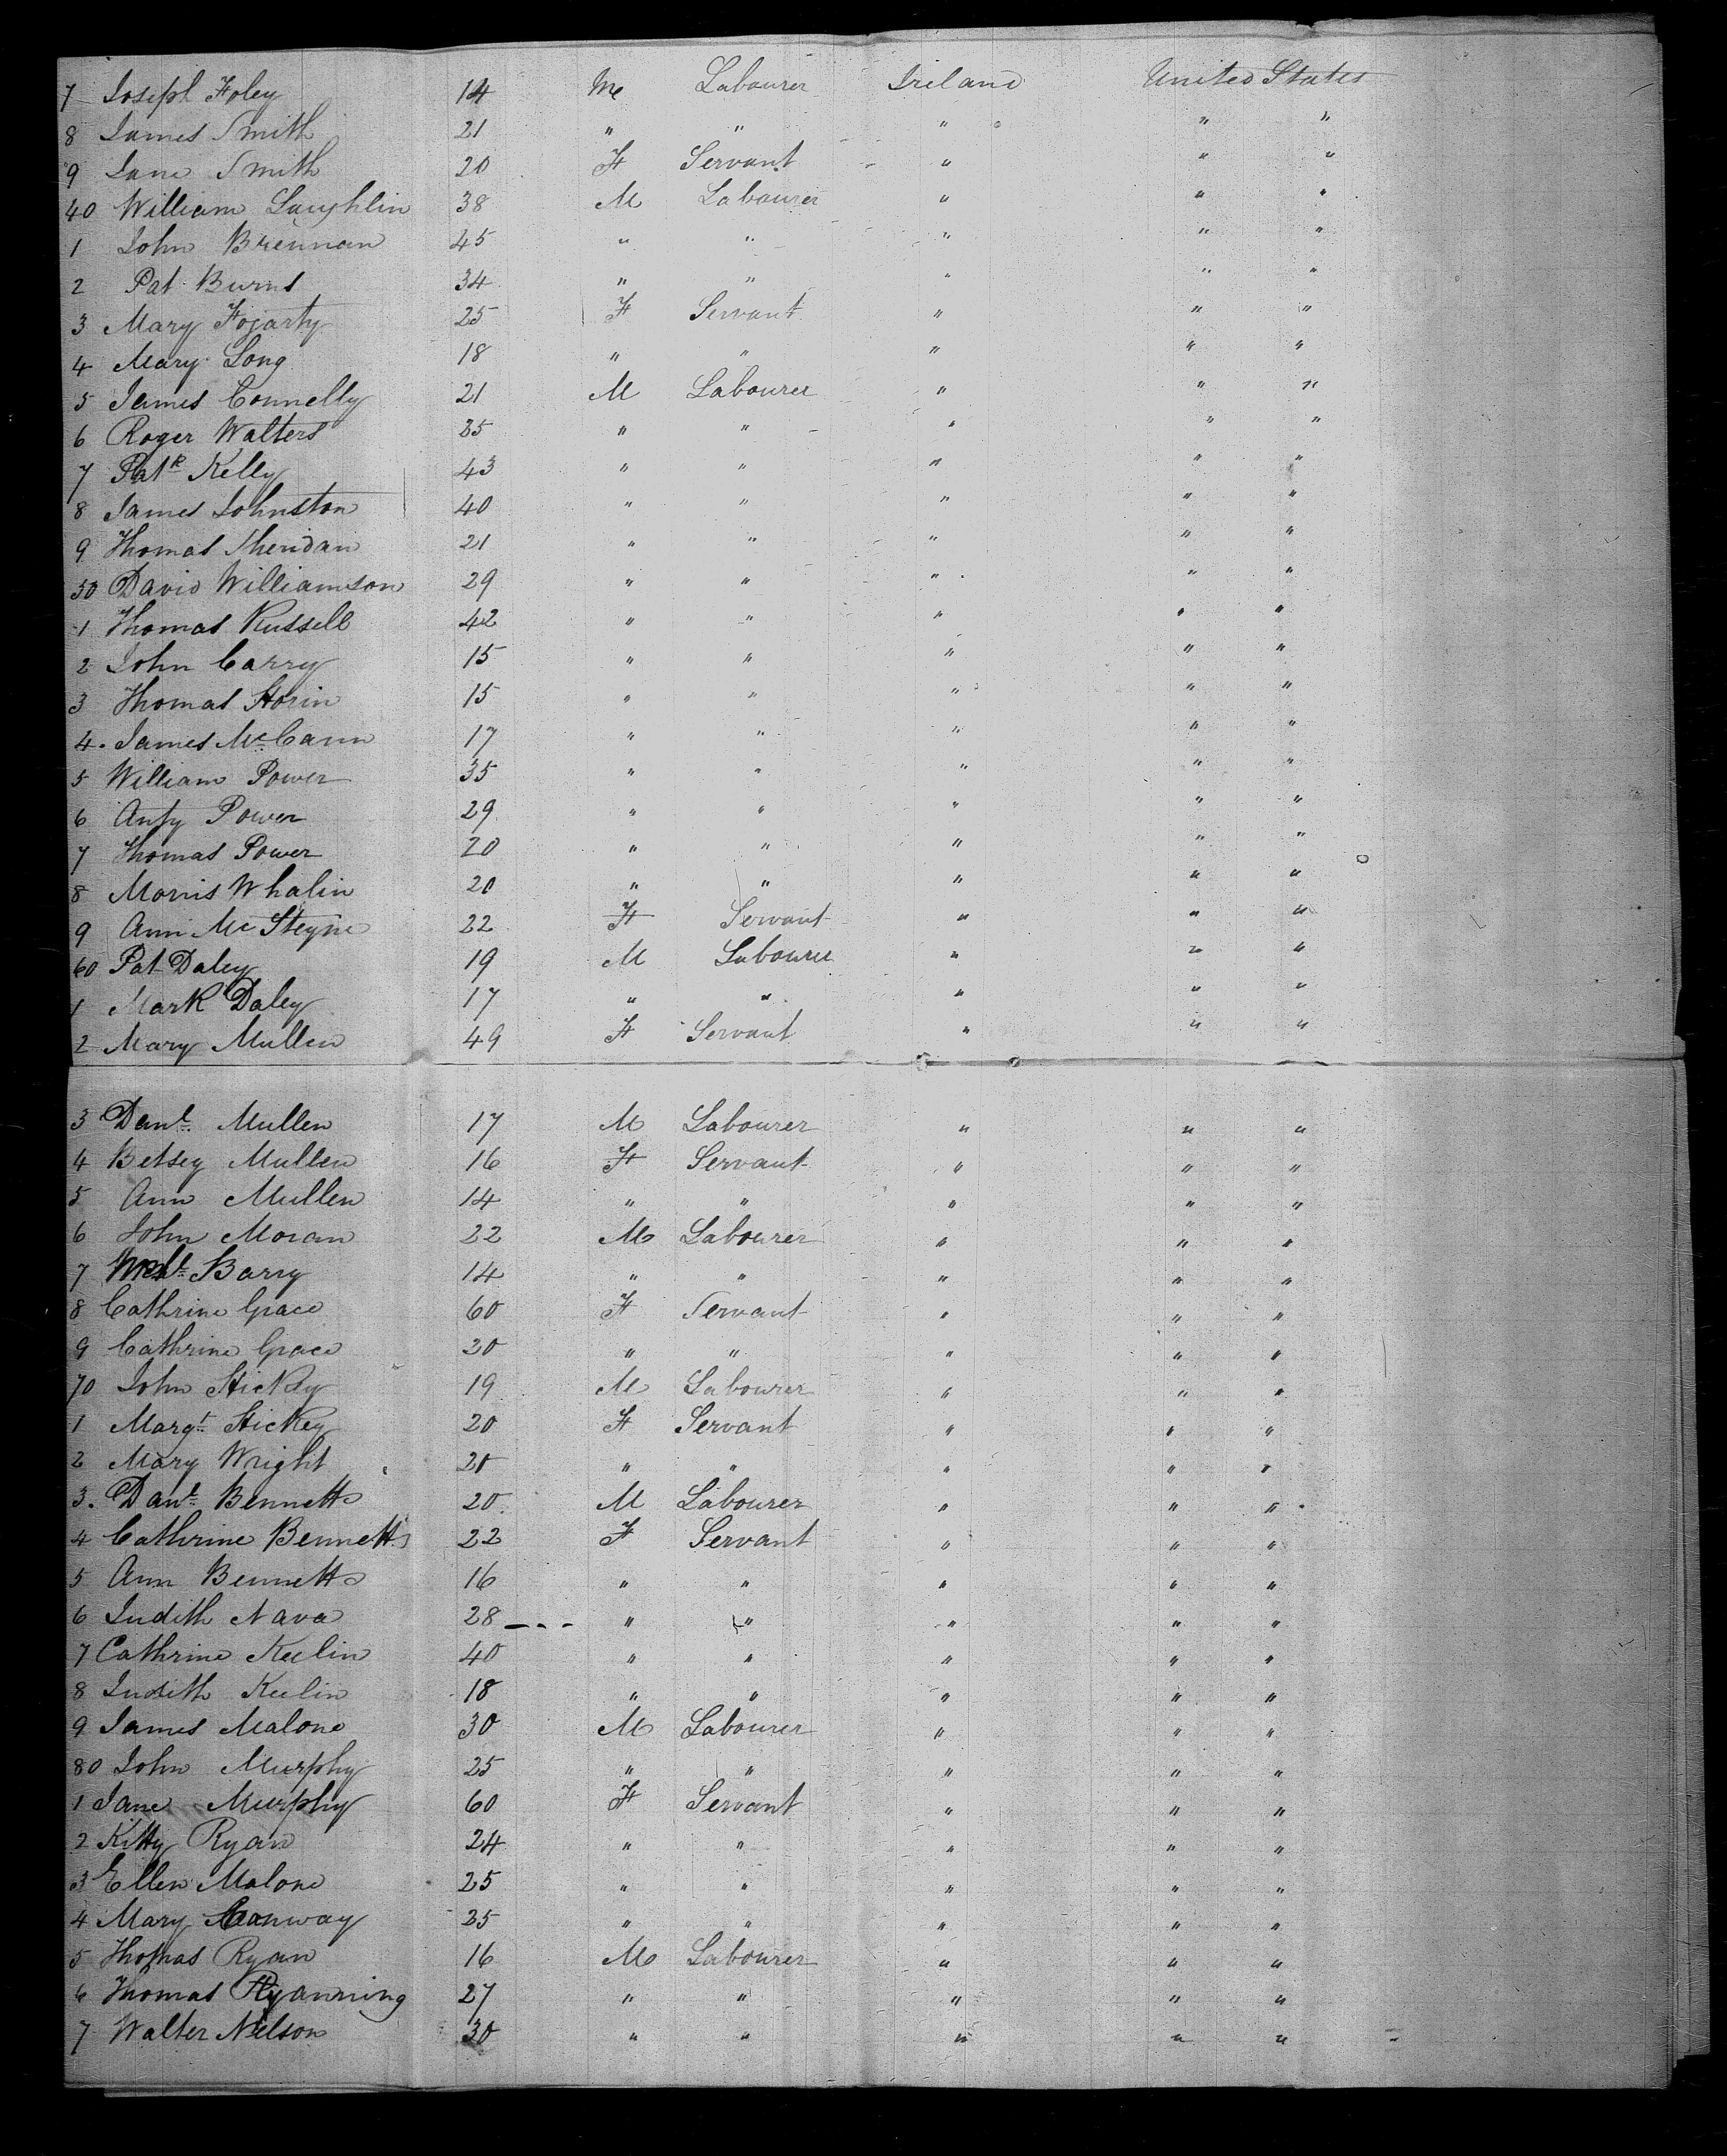 7 Joseph Foley 14 M Labourer Ireland United States
8 James Smith 21 " " " " "
9 Jane Smith 20 F Servant " " "
40 William Laughlin 38 M Labourer " " "
1 John Brennan 45 " " " " "
2 Pat Burns 34 " " " " "
3 Mary Fogarty 25 F Servant " " "
4 Mary Long 18 " " " " "
5 James Connelly 21 M Labourer " " "
6 Roger Walters 25 " " " " "
7 Patk Kelly 43 " " " " "
8 James Johnston 40 " " " " "
9 Thomas Sheridan 21 " " " " "
50 David Williamson 29 " " " " "
1 Thomas Russell 42 " " " " "
2 John Carry 15 " " " " "
3 Thomas Horin 15 " " " " "
4 James McCann 17 " " " " "
5 William Power 35 " " " " "
6 Power 29 " " " " "
7 Thomas Power 20 " " " " "
8 Morris Whalin 20 " " " " "
9 Ann Mc Steyne 22 F Servant " " "
60 Pat Daley 19 M Labourer " " "
1 Mark Daley 17 " " " " "
2 Mary Mullen 49 F Servant " " "
3 Danl Mullen 17 M Labourer " " "
4 Betsey Mullen 16 F Servant " " "
5 Ann Mullen 14 " " " " "
6 John Moran 22 M Labourer " " "
7 Barry 14 " " " " "
8 Cathrine Grace 60 F Servant " " "
9 Cathrine Grace 20 " " " " "
70 John Hickey 19 M Labourer " " "
1 Margt Hickey 20 F Servant " " "
2 Mary Wright 20 " " " " "
3 Danl Bennett 20 M Labourer " " "
4 Cathrine Bennett 22 F Servant " " "
5 Ann Bennett 16 " " " " "
6 Judith Nava 28 " " " " "
7 Cathrine Keelin 40 " " " " "
8 Judith Keelin 18 " " " " "
9 James Malone 30 M Labourer " " "
80 John Murphy 25 " " " " "
1 Jane Murphy 60 F Servant " " "
2 Kitty Ryan 24 " " " " "
3 Ellen Malone 25 " " " " "
4 Mary Conway 25 " " " " "
5 Thomas Ryan 16 M Labourer " " "
6 Thomas 27 " " " " "
7 Walter Nelson 30 " " " " "